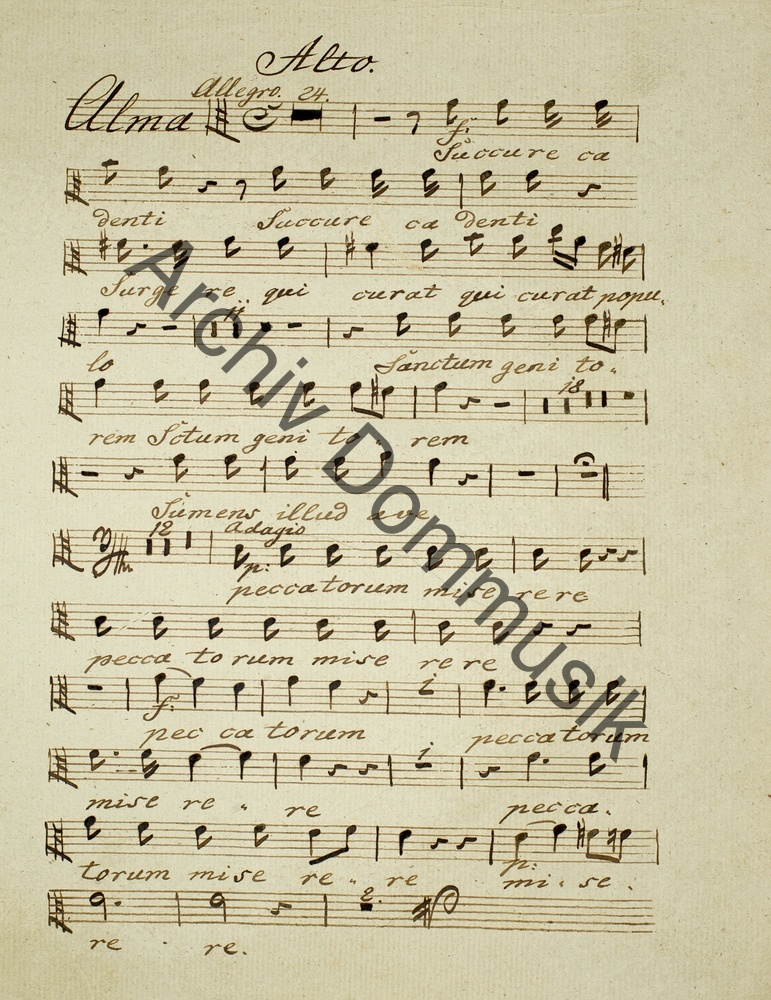 Alto.
Allegro. 24.
Alma
f:
Succure ca
denti Succure ca denti
Surge re qui curat qui curat popu.
14.
lo Sanctum geni to..
18
rem Sctum geni to rem
Sumens illud ave
12 Adagio
p:
peccatorum mise re re
pecca to rum mise re re
i
f:
pec ca torum peccatorum
i
mise re .. re pecca.
p:
torum mise re .. re mi . se .
2.
re . re.
Archiv Dommusik